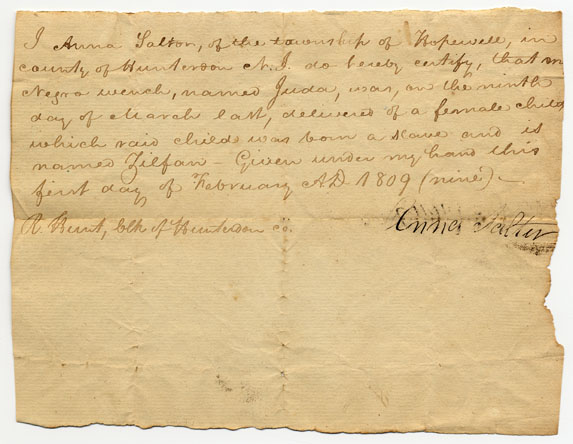 I Anna Salton, of the township of Hopewell, in
county of Hunterdon N.J. do hereby certify, that m
Negro wench, named Juda, was, on the ninth
day of March last, delivered of a female child
which said child was born a slave and is
named Zilfan – Given under my hand this
first day of February AD 1809 (nine) –
Anna Salter
R. Hunt, Clk of Hunterdon Co.